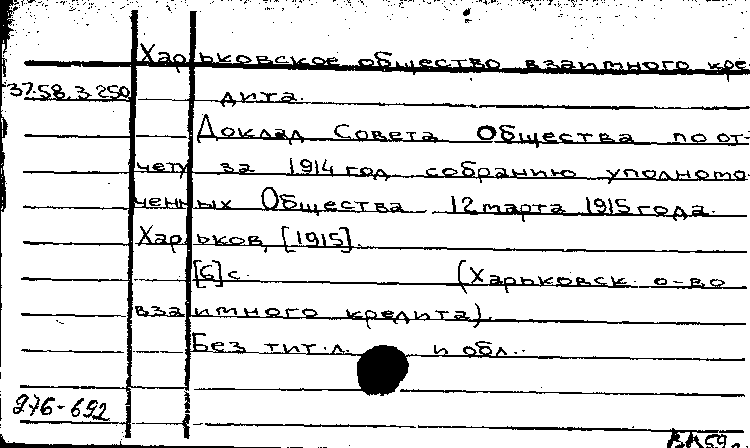 Харьковское общество взаимного кре-
37.58.3.250
дита.
Доклад Совета Общества по от-
чету за 1914 год собранию уполномо-
ченных Общества 12 марта 1915 года.
Харьков, [1915].
[6] с. (Харьковск. о-во
взаимного кредита).
Без тит. л. и обл..
276-692